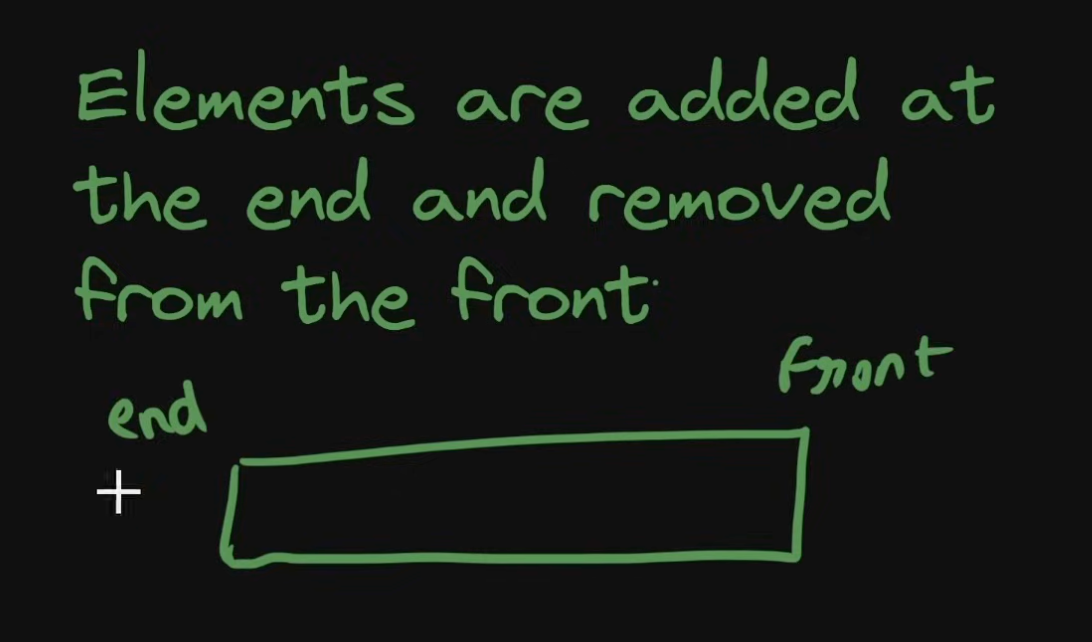 Elements are added at
the end and removed
from the front.
front
end